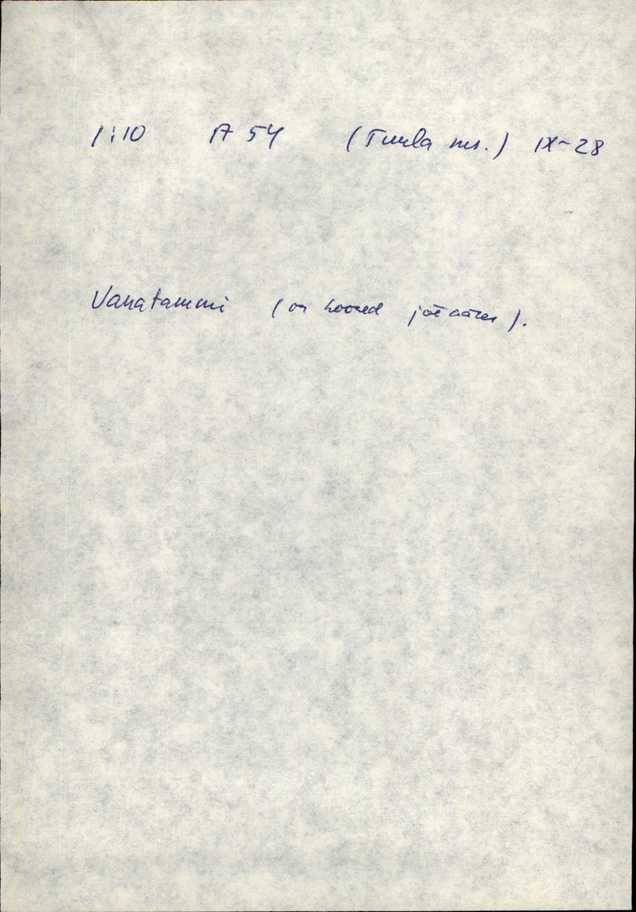 1:10 A 54 (Tuula ms.) IX-28
Vanatammi (on hooned jõe ääres).